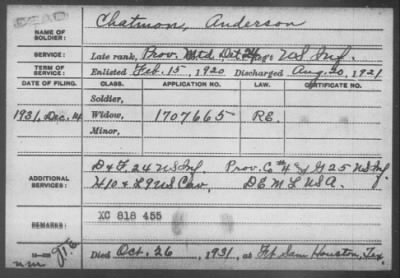 DEAD
NAME OF SOLDIER: Chatmon, Anderson
SERVICE: Late rank, Prov. Mtd. Det 24 US Inf.
TERM OF SERVICE: Enlisted Feb. 15, 1920 Discharged Aug. 20, 1921
DATE OF FILING. CLASS. APPLICATION NO. LAW. CERTIFICATE NO.
Soldier,
1931, Dec. 14 Widow, 1707665 RE.
Minor,
ADDITIONAL SERVICES: D & F. 24 US Inf. Prov. Co #4 & G 25 US Inf
H 10 & L 9 US Cav, D E M L USA.
REMARKS: XC 818 455
Died Oct. 26, 1931, at Ft Sam Houston, Tex